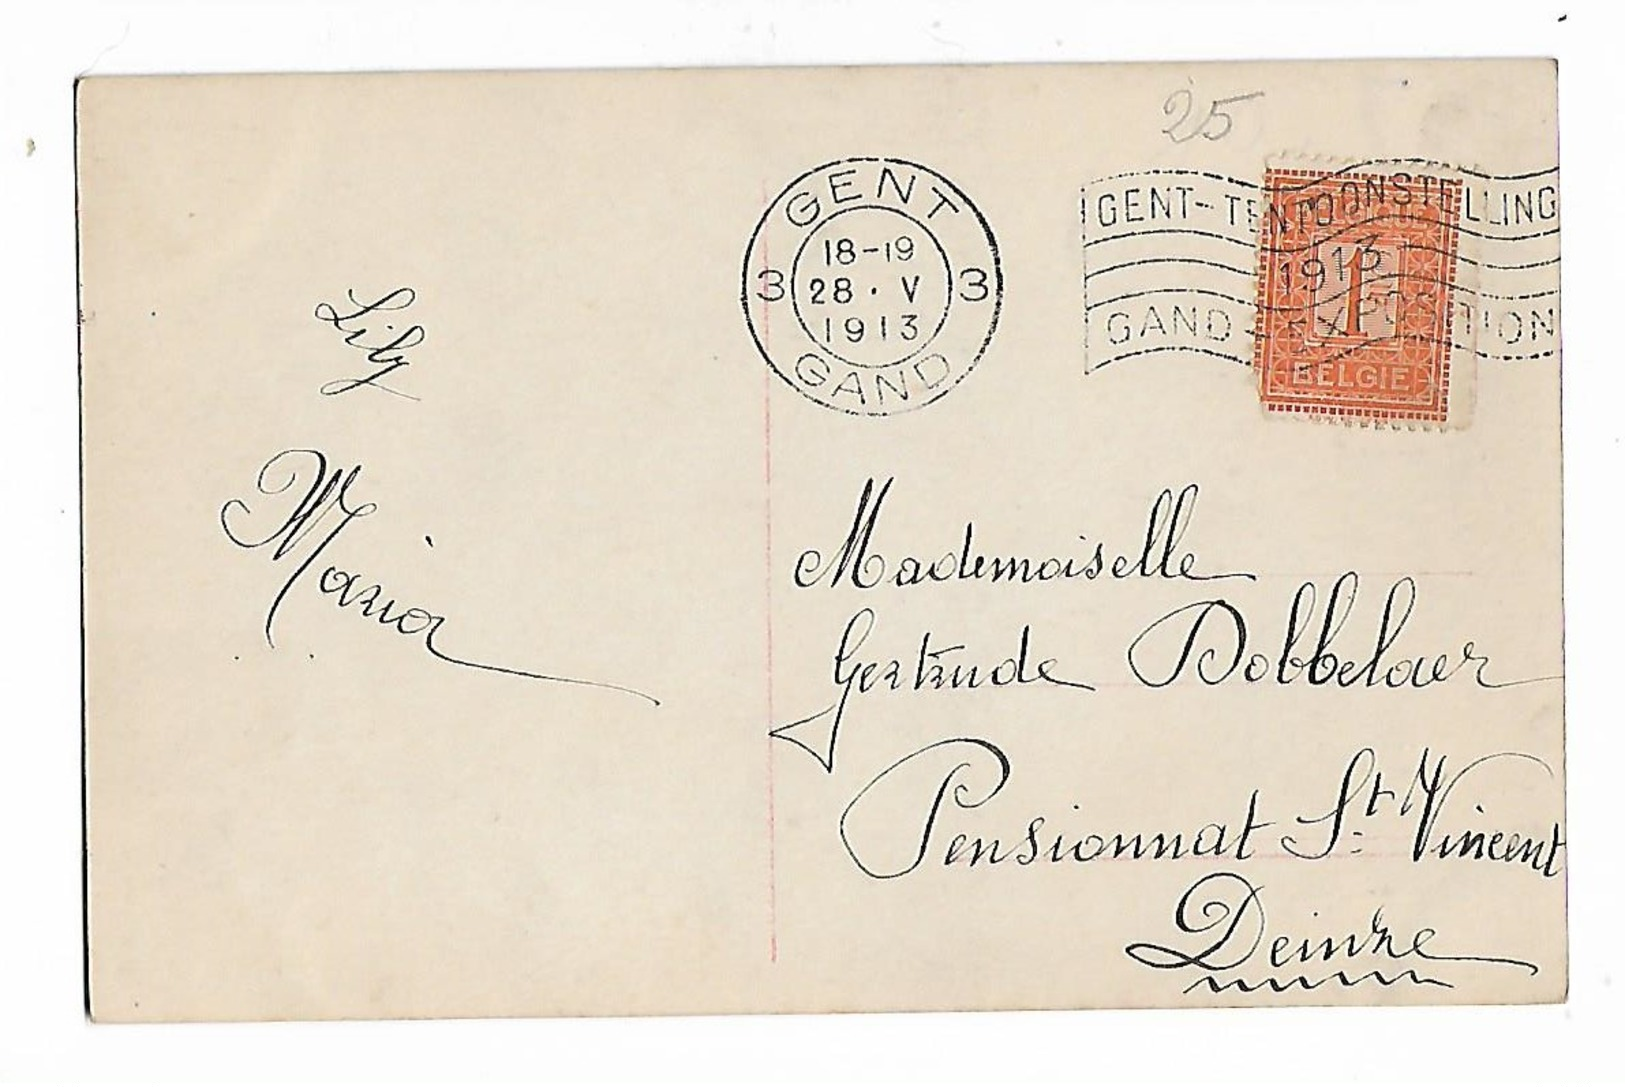 25
GENT
18-19
3 28 · V 3
1913
GAND
GENT-TENTOONSTELLING
1913
GAND-EXPOSITION
1
BELGIE
Lily
Maria
Mademoiselle
Gertrude Dobbelaer
Pensionnat St Vincent
Deinze